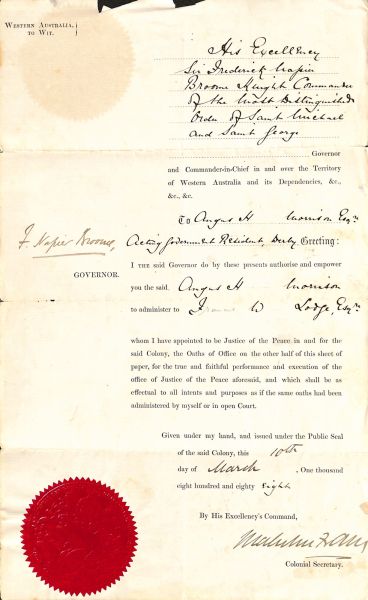 WESTERN AUSTRALIA,
TO WIT.
His Excellency
Sir Frederick Napier
Broome Knight Commander
of the Most Distinguished
Order of Saint Michael
and Saint George
Governor
and Commander-in-Chief in and over the Territory
of Western Australia and its Dependencies, &c.,
&c., &c.
To Angus H Morrison Esqre
F. Napier Broome,
Acting Government Resident Derby, Greeting:
GOVERNOR.
I THE said Governor do by these presents authorise and empower
you the said Angus H Morrison
to administer to W Lodge, Esqre
whom I have appointed to be Justice of the Peace in and for the
said Colony, the Oaths of Office on the other half of this sheet of
paper, for the true and faithful performance and execution of the
office of Justice of the Peace aforesaid, and which shall be as
effectual to all intents and purposes as if the same oaths had been
administered by myself or in open Court.
Given under my hand, and issued under the Public Seal
of the said Colony, this 10th
day of March, One thousand
eight hundred and eighty eight
By His Excellency's Command,
Colonial Secretary.